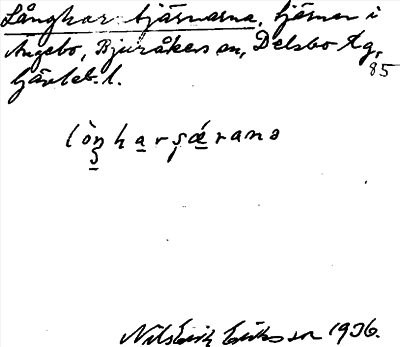 Långhar tjärnarna, tjärnar i
Ängebo, Bjuråkers sn, Delsbo tg,
85
Gävleb. l.
lòŋharʂǽrana
Nils Erik Eriksson 1936.